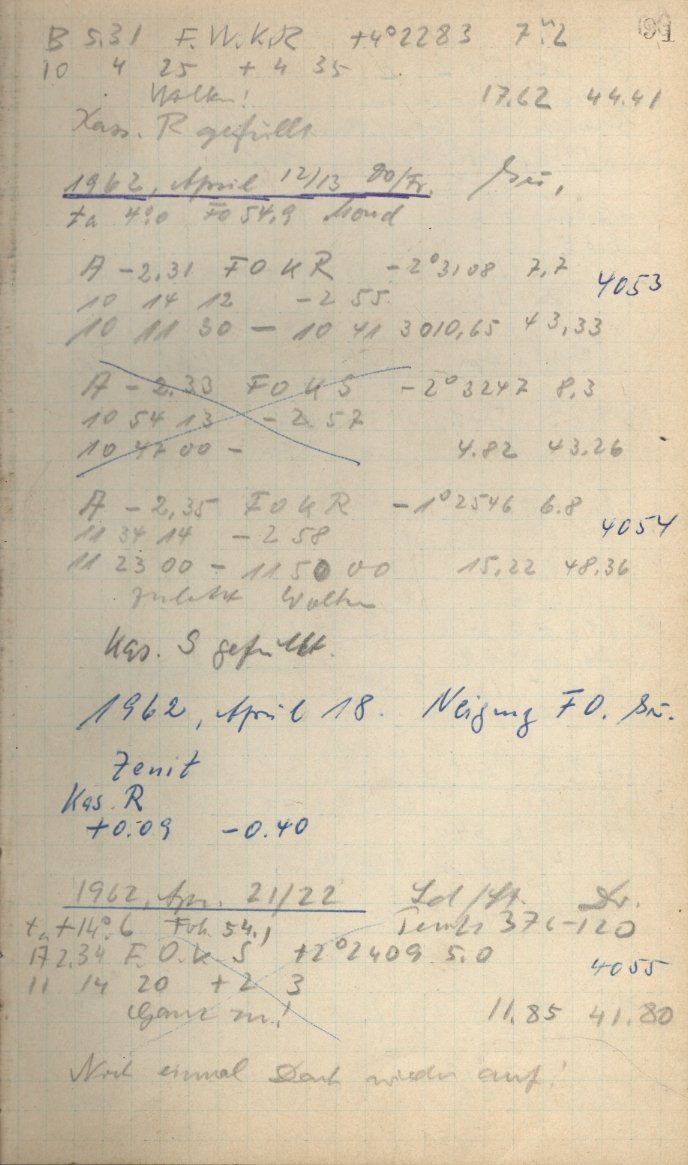 91
B 5.31 F.W.K.R +4°2283 7.2
10 4 25 + 4 35
Wolken! 17.62 44.41
Kass. R gefüllt
1962, April 12/13 Do/Fr.
ta 4°.0 Fo 54.9 Mond
A -2.31 F O K R -2°3108 7.7 4053
10 14 12 -2 55
10 11 30 - 10 41 30 10,65 43,33
A -2.33 F O K S -2°3247 8.3
10 54 13 -2 57
10 47 00 - 4.82 43.26
A -2,35 F O K R -1°2546 6.8 4054
11 34 14 -2 58
11 23 00 - 11 50 00 15.22 48.36
zuletzt Wolken
Kas. S gefüllt.
1962, April 18. Neigung F O.
Zenit
Kas. R
+0.09 -0.40
1962, Apr. 21/22
ta +14°.6 Fok. 54.1 Temp 376-120
A 2.34 F. O. K S +2°2409 5.0 4055
11 14 20 + 2 3
Ganz zu! 11.85 41.80
Noch einmal Dach wieder auf!